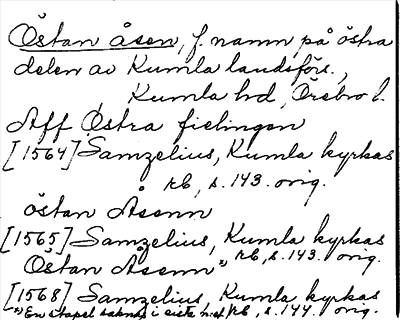 Östan åsen, f. namn på östra
delen av Kumla landsförs.,
Kumla hd, Örebro l.
Aff Östra fielingen
[1564] Samzelius, Kumla kyrkas
rb, s. 143. orig.
östan Åsenn
[1565] Samzelius, Kumla kyrkas
rb, s. 143. orig.
Östan Åsenn*)
[1568] Samzelius, Kumla kyrkas
rb, s. 144. orig.
*) En stapel saknas i sista